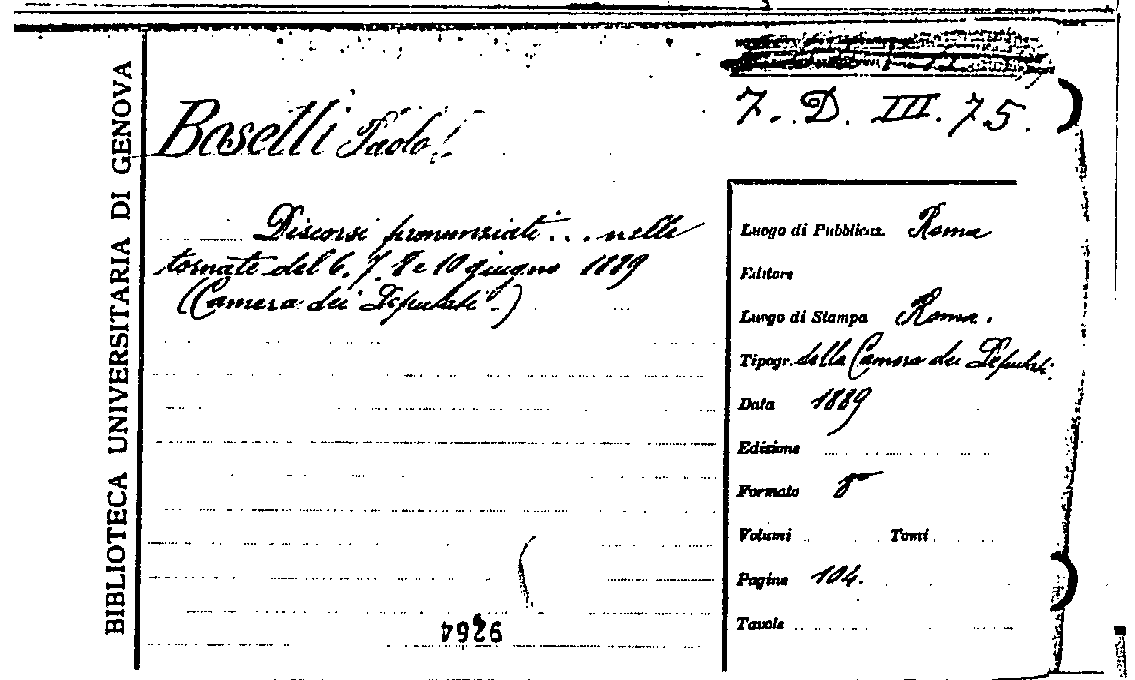 BIBLIOTECA UNIVERSITARIA DI GENOVA
7. D. III. 75.
Boselli Paolo
Discorsi pronunziati ... nelle
tornate del 6. 7. 8 e 10 giugno 1889
(Camera dei Deputati.)
Luogo di Pubblicaz. Roma
Editore
Luogo di Stampa Roma.
Tipogr. della Camera dei Deputati.
Data 1889
Edizione
Formato 8°
Volumi Tomi
Pagine 104.
Tavole